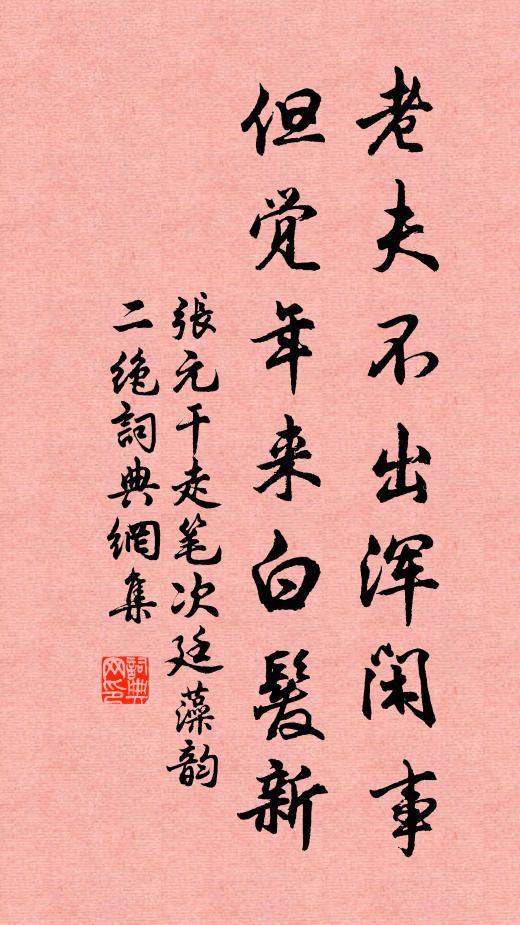 老夫不出浑闲事
但觉年来白髮新
張元干走笔次廷藻韵
二绝詞典網集
詞典网印